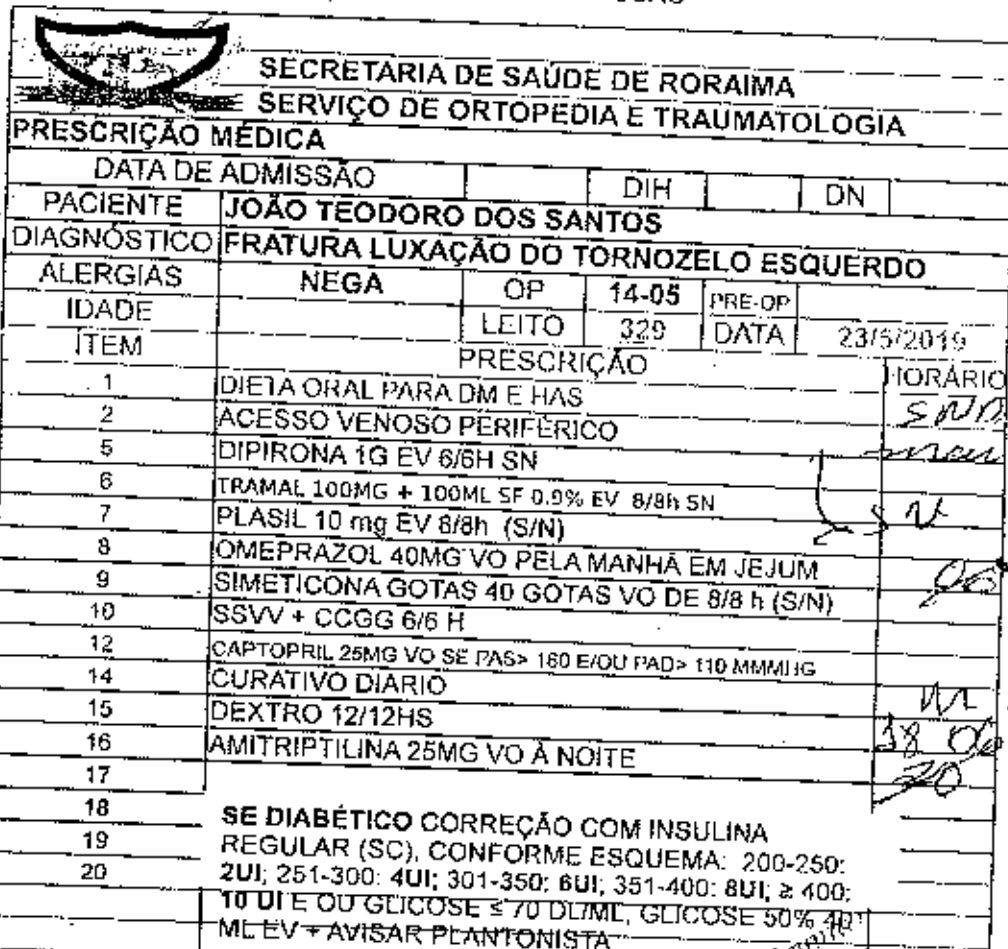 SECRETARIA DE SAÚDE DE RORAIMA
SERVIÇO DE ORTOPEDIA E TRAUMATOLOGIA
PRESCRIÇÃO MÉDICA
DATA DE ADMISSÃO DIH DN
PACIENTE JOÃO TEODORO DOS SANTOS
DIAGNÓSTICO FRATURA LUXAÇÃO DO TORNOZELO ESQUERDO
ALERGIAS NEGA OP 14-05 PRE-OP
IDADE LEITO 329 DATA 23/5/2019
ITEM PRESCRIÇÃO HORÁRIO
1 DIETA ORAL PARA DM E HAS SND
2 ACESSO VENOSO PERIFÉRICO
5 DIPIRONA 1G EV 6/6H SN
6 TRAMAL 100MG + 100ML SF 0.9% EV 8/8h SN SN
7 PLASIL 10 mg EV 8/8h (S/N)
8 OMEPRAZOL 40MG VO PELA MANHÃ EM JEJUM 06
9 SIMETICONA GOTAS 40 GOTAS VO DE 8/8 h (S/N)
10 SSVV + CCGG 6/6 H
12 CAPTOPRIL 25MG VO SE PAS> 160 E/OU PAD> 110 MMMHG
14 CURATIVO DIARIO
15 DEXTRO 12/12HS 18 06
16 AMITRIPTILINA 25MG VO À NOITE 20
17
18 SE DIABÉTICO CORREÇÃO COM INSULINA
19 REGULAR (SC), CONFORME ESQUEMA: 200-250:
20 2UI; 251-300: 4UI; 301-350: 6UI; 351-400: 8UI; ≥ 400:
10 UI E OU GLICOSE ≤ 70 DL/ML, GLICOSE 50% 40
ML EV + AVISAR PLANTONISTA